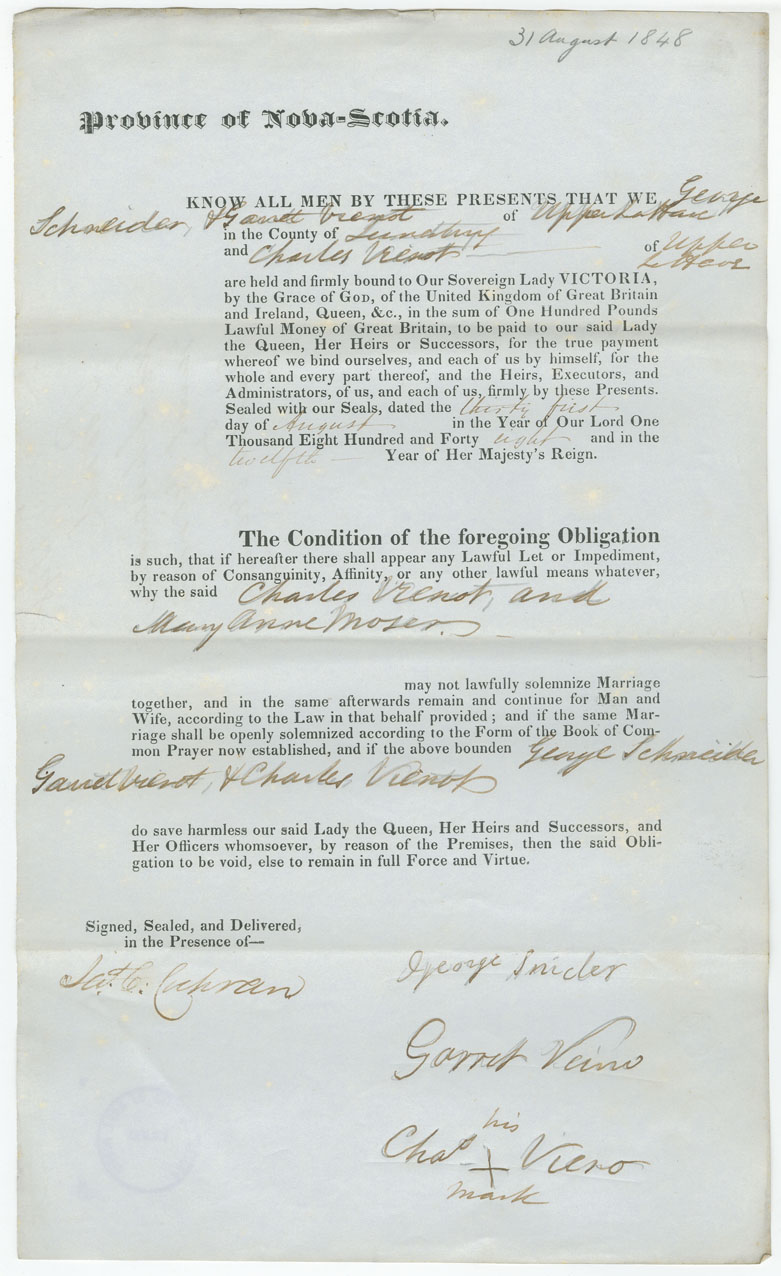 31 August 1848
Province of Nova-Scotia.
KNOW ALL MEN BY THESE PRESENTS THAT WE, George
Schneider, & Vienot of Upper LaHave
in the County of Lunenburg
and Charles Vienot of Upper
LaHave
are held and firmly bound to Our Sovereign Lady VICTORIA,
by the Grace of GOD, of the United Kingdom of Great Britain
and Ireland, Queen, &c., in the sum of One Hundred Pounds
Lawful Money of Great Britain, to be paid to our said Lady
the Queen, Her Heirs or Successors, for the true payment
whereof we bind ourselves, and each of us by himself, for the
whole and every part thereof, and the Heirs, Executors, and
Administrators, of us, and each of us, firmly by these Presents.
Sealed with our Seals, dated the thirty first
day of August in the Year of Our Lord One
Thousand Eight Hundred and Forty eight and in the
twelfth Year of Her Majesty's Reign.
The Condition of the foregoing Obligation
is such, that if hereafter there shall appear any Lawful Let or Impediment,
by reason of Consanguinity, Affinity, or any other lawful means whatever,
why the said Charles Vienot, and
Mary Anne Moser
may not lawfully solemnize Marriage
together, and in the same afterwards remain and continue for Man and
Wife, according to the Law in that behalf provided; and if the same Mar-
riage shall be openly solemnized according to the Form of the Book of Com-
mon Prayer now established, and if the above bounden George Schneider
Vienot, & Charles Vienot
do save harmless our said Lady the Queen, Her Heirs and Successors, and
Her Officers whomsoever, by reason of the Premises, then the said Obli-
gation to be void, else to remain in full Force and Virtue.
Signed, Sealed, and Delivered,
in the Presence of—
Cochran
George Snider
Garret Veino
his
Chas X Vieno
mark